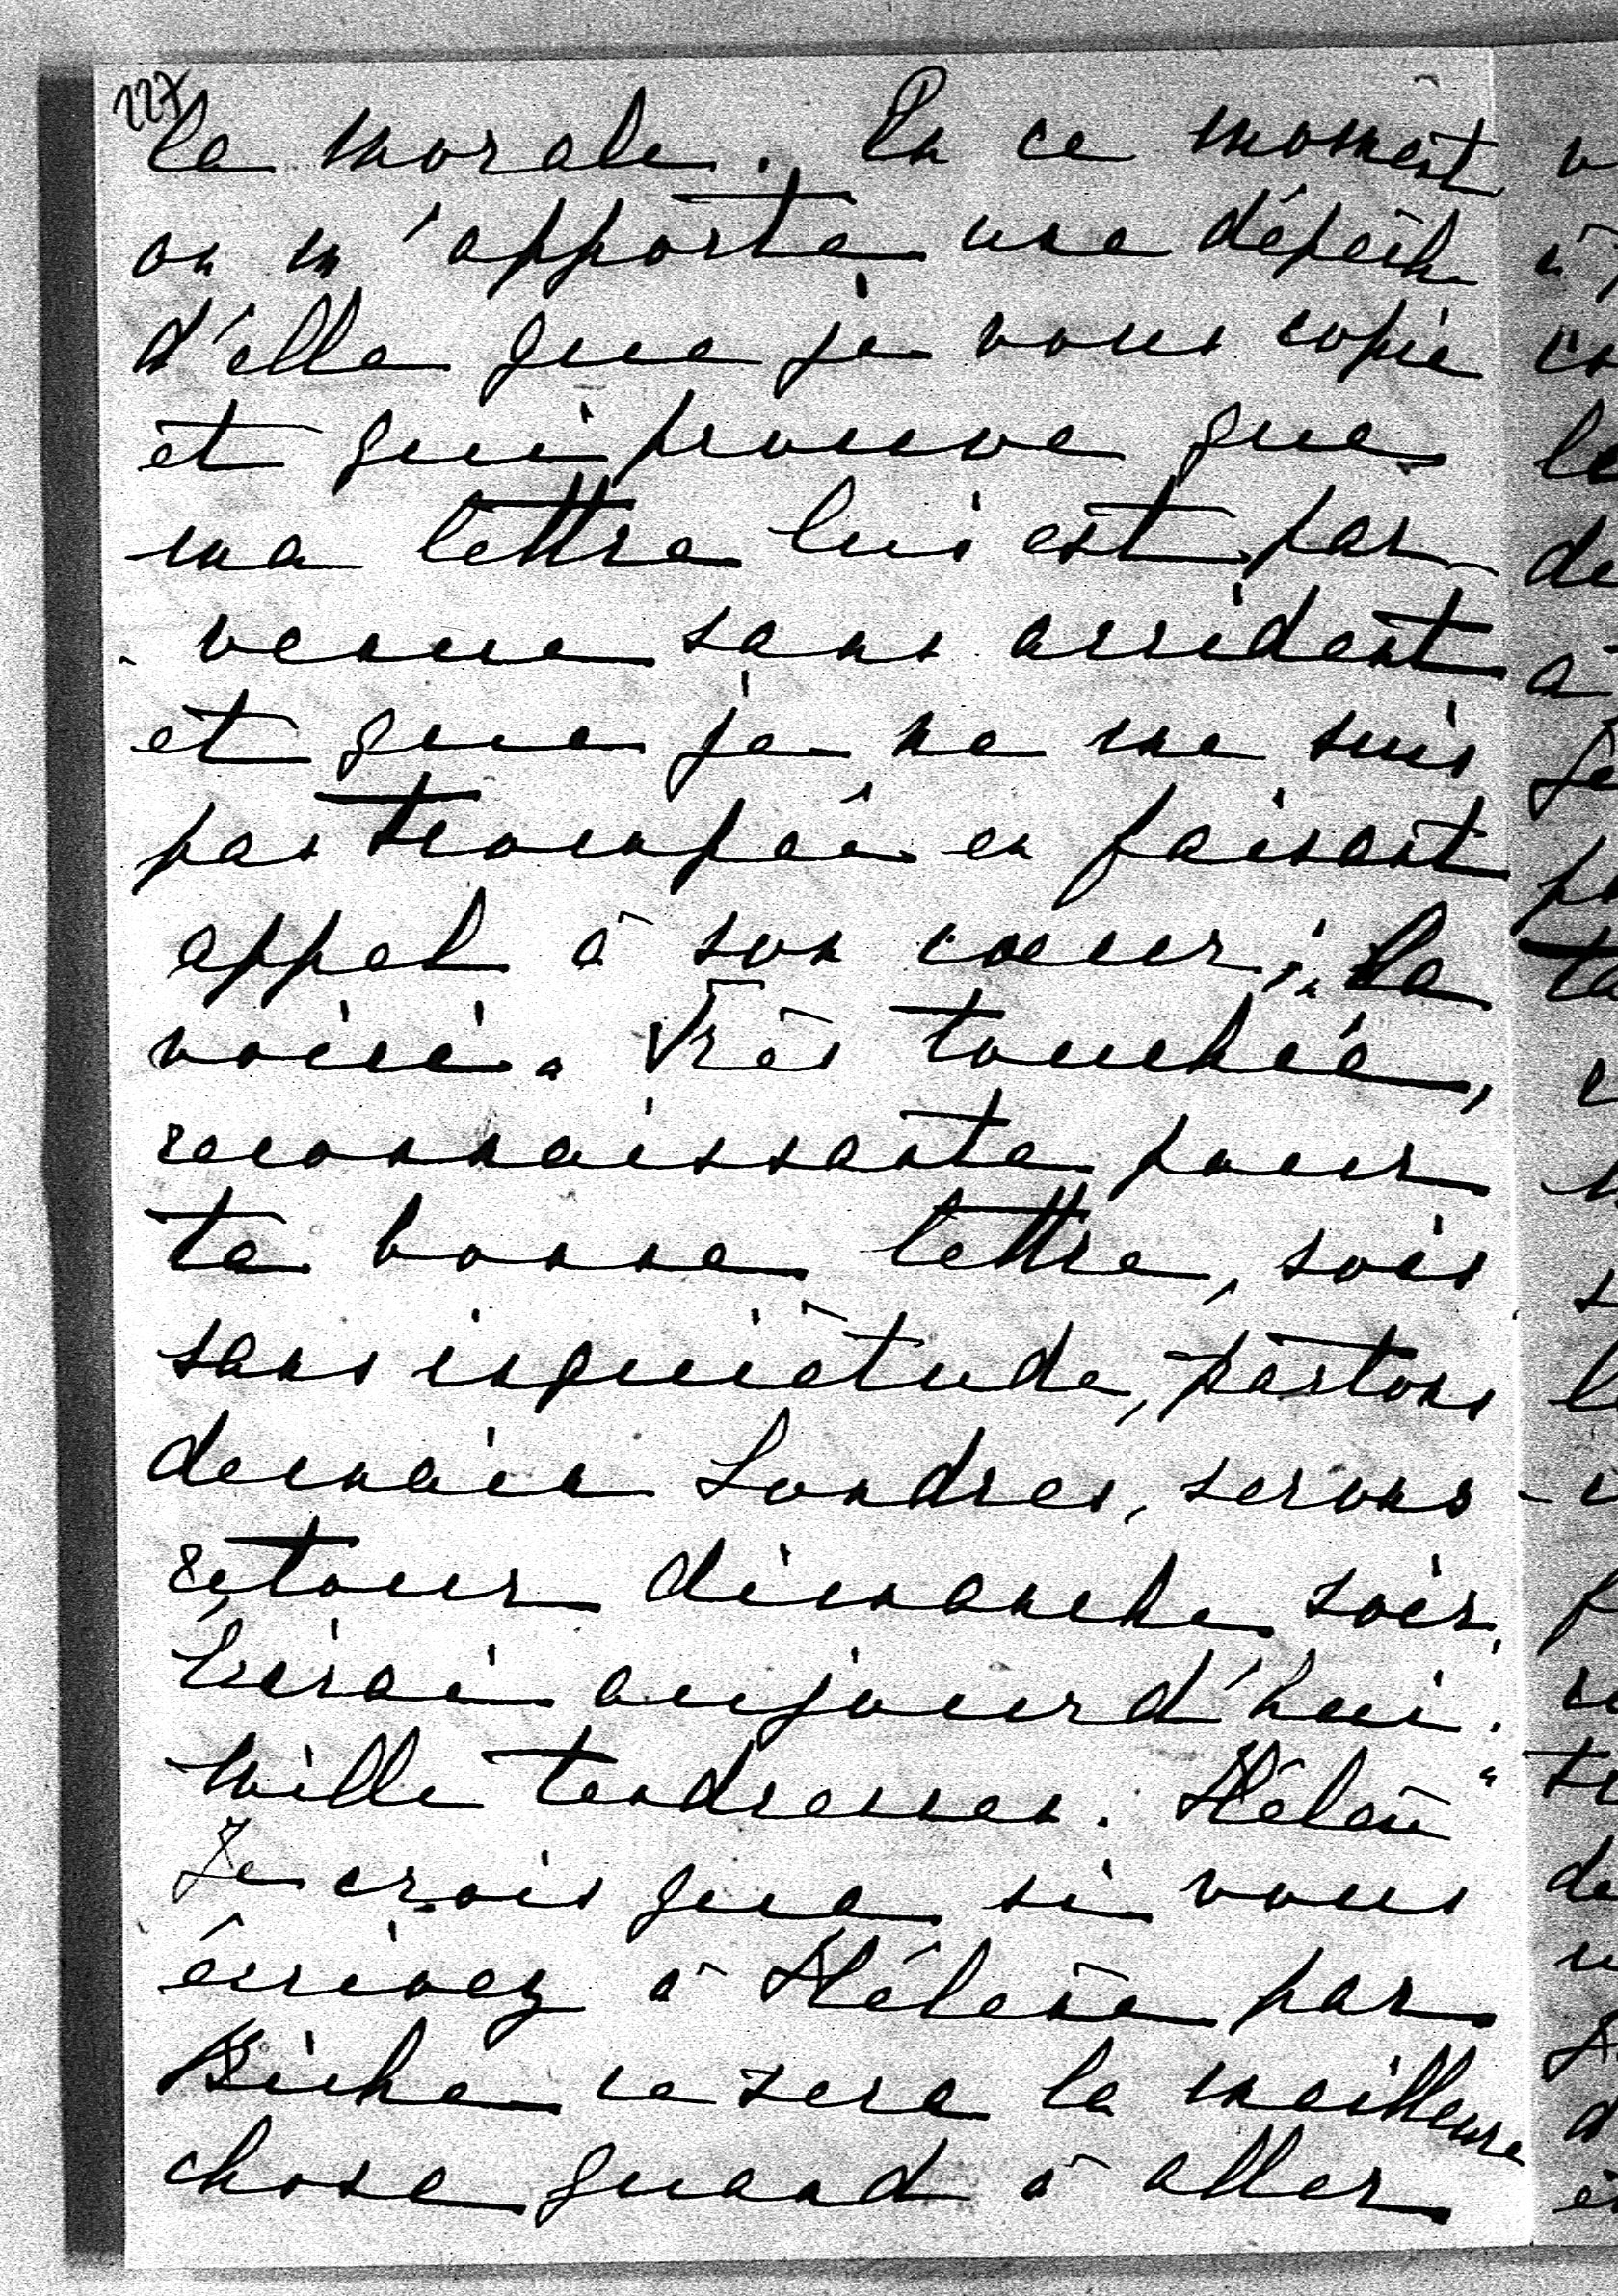 227
la morale. En ce moment
on m'apporte une dépêche
d'elle que je vous copie
et qui prouve que
ma lettre lui est par
venue sans accident
et que je ne me suis
pas trompée en faisant
appel à son cœur; La
voici. "Très touchée,
reconnaissante pour
ta bonne lettre, sois
sans inquiétude, partons
demain Londres, serons
retour dimanche soir,
écrirai aujourd'hui.
Mille tendresses. Hélène"
Je crois que si vous
écrivez à Hélène par
Biche ce sera la meilleure
chose quand à aller